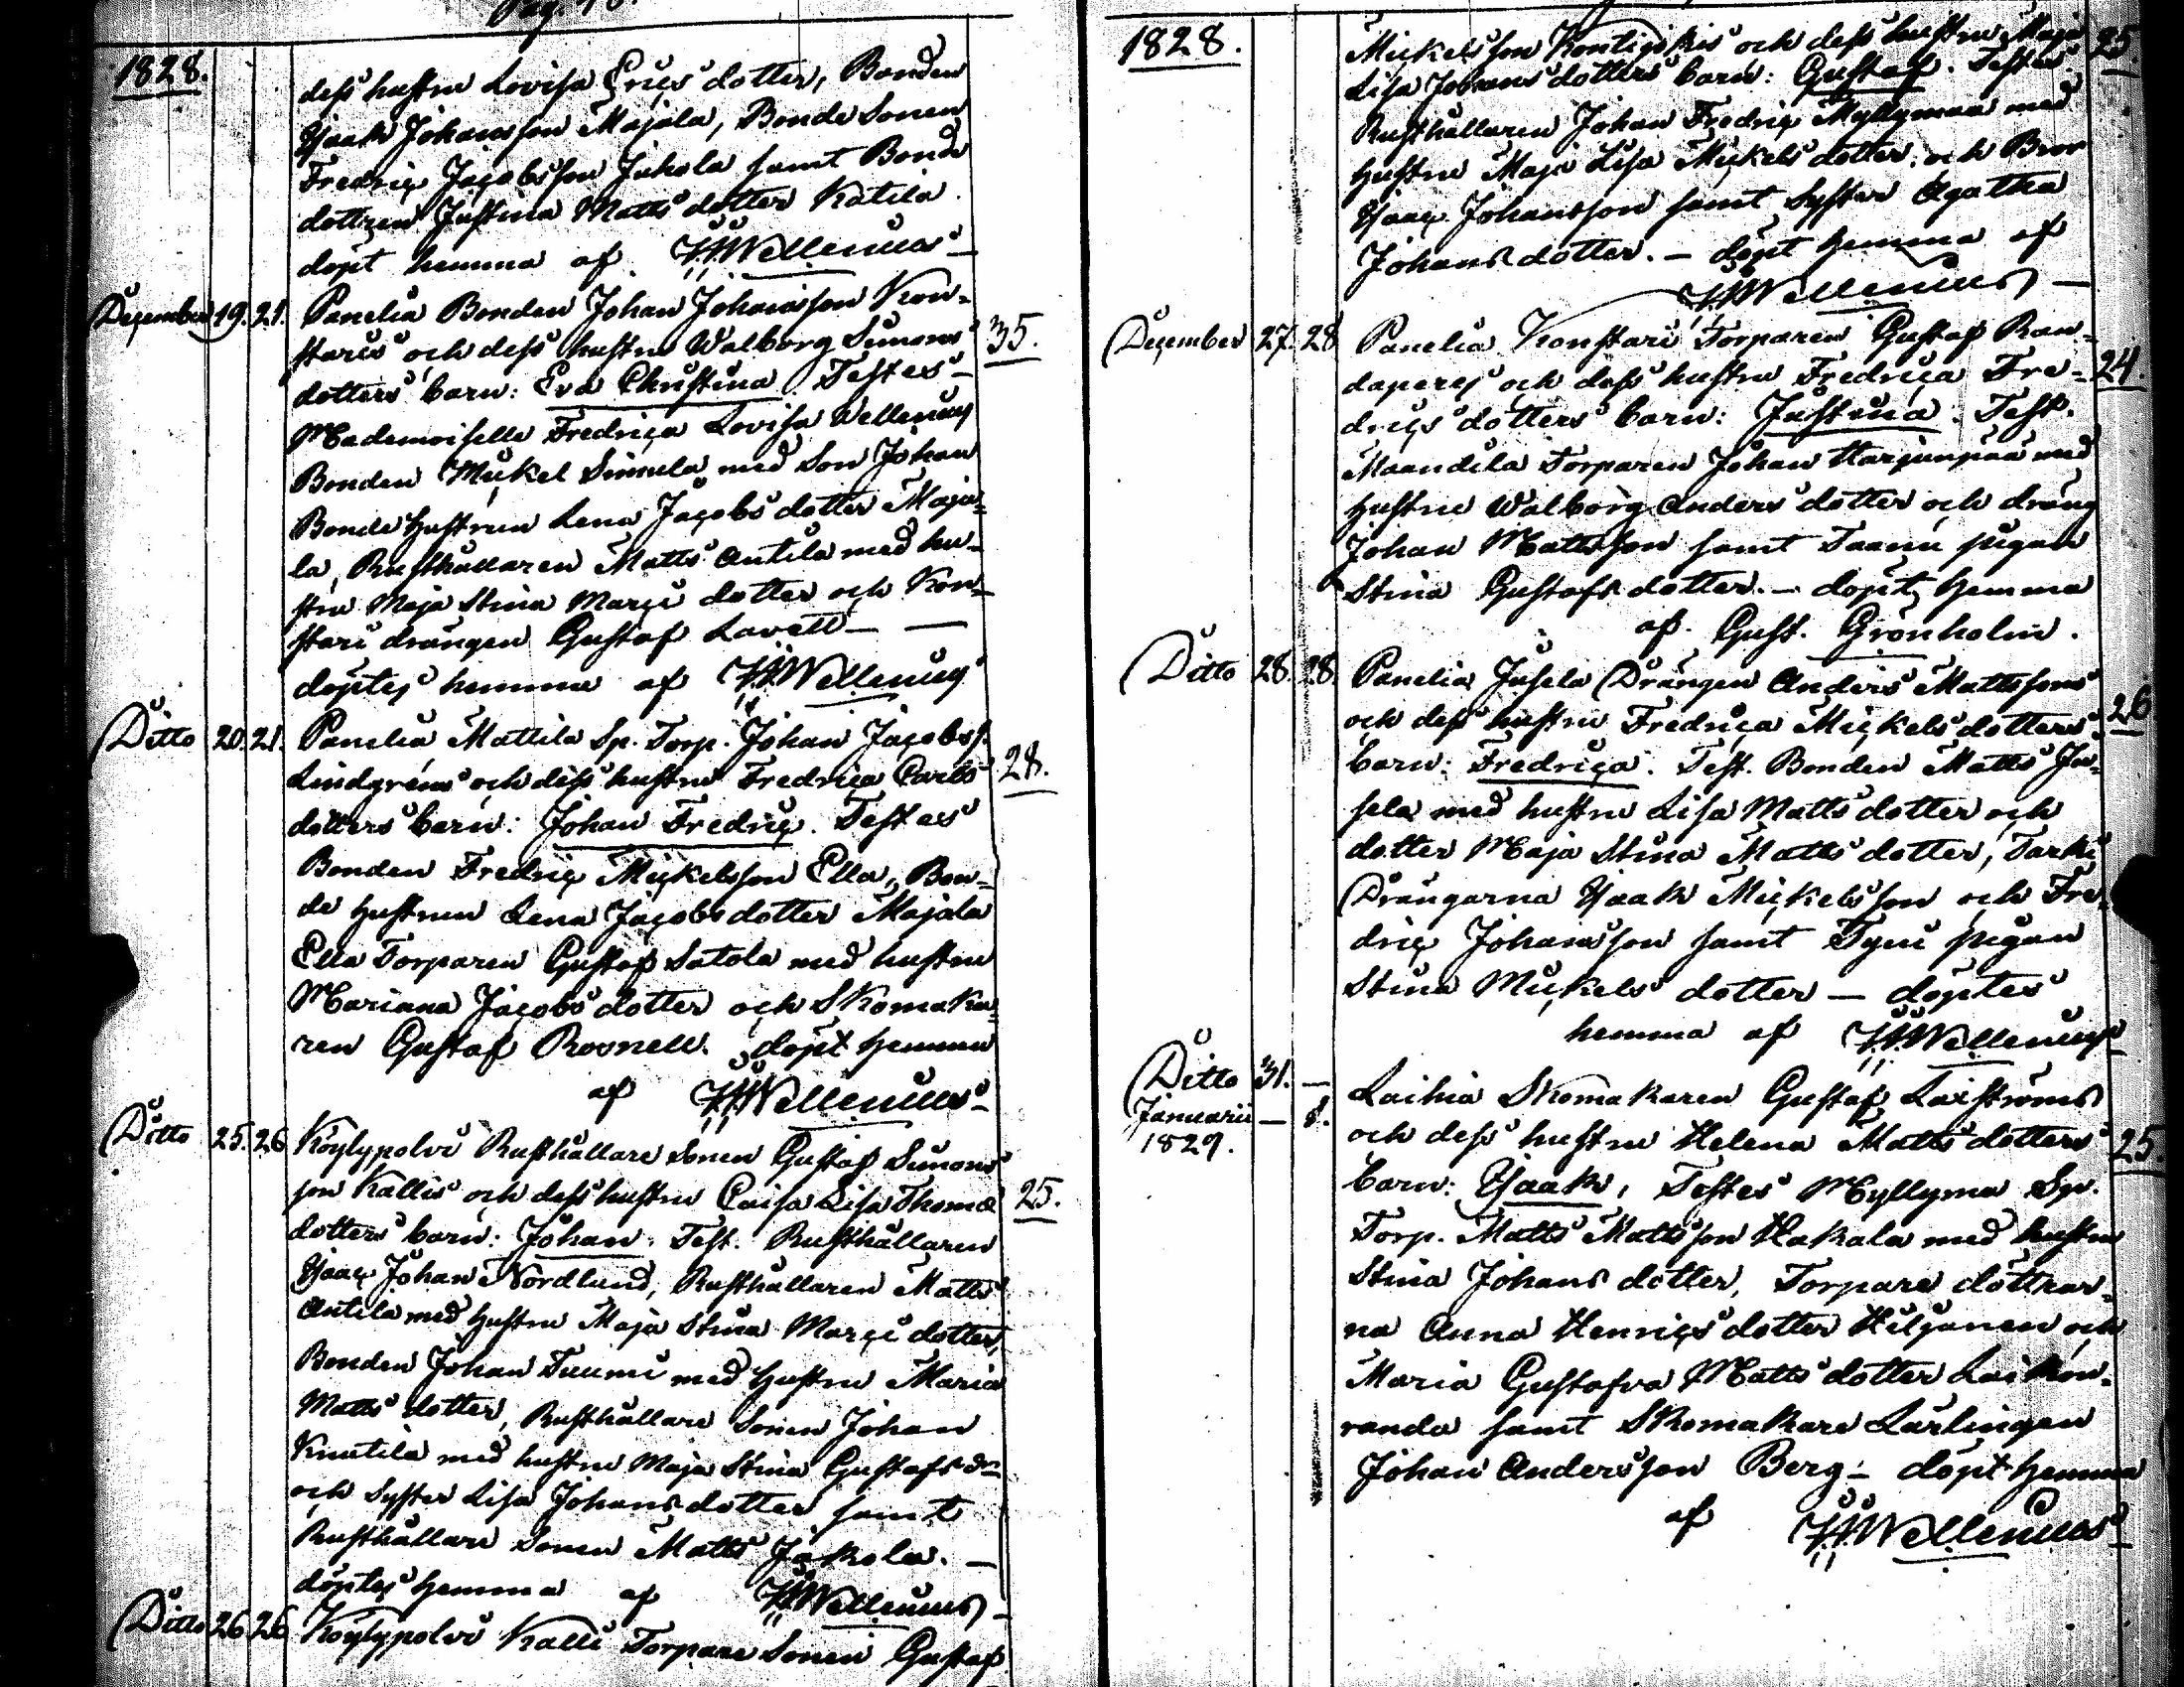 Pag.
1828.
dess hustru Lovisa Erics dotter, Bonden
Isaak Johansson Majala, Bonde Sonen
Fredric Jacobsson Juhola samt Bond
dottren Justina Matts dotter Katila.
döpt hemma af Wellenius
December 19. 21. Panelia Bonden Johan Johansson Kon-
staris och dess hustru Walborg Simons
dotters barn: Eva Christina. Testes
35.
Mademoiselle Fredrica Lovisa Wellenius
Bonden Mickel Simula med Son Johan
Bonde Hustrun Lena Jacobs dotter Maja-
la, Rusthållaren Matts Antila med hu-
stru Maja Stina Marci dotter och Kon-
stari drängen Gustaf Lavell
döptes hemma af Wellenius
Ditto 20. 21. Panelia Mattila Sp. Torp. Johan Jacobss.
Lindgrens och dess hustru Fredrica Carls
28.
dotters barn: Johan Fredric. Testes
Bonden Fredric Mickelsson Ella, Bon-
de Hustrun Lena Jacobs dotter Majala
Ella Torparen Gustaf Satola med hustru
Mariana Jacobs dotter och Skomaka-
ren Gustaf Rosnell. döpt hemma
af Wellenius
Ditto 25. 26 Köylypolvi Rusthållare Sonen Gustaf Simons
son Kallis och dess hustru Caisa Lisa Thomæ
25.
dotters barn: Johan. Test. Rusthållaren
Isaac Johan Nordlund, Rusthållaren Matts
Antila med Hustru Maja Stina Marci dotter,
Bonden Johan Tuumi med Hustru Maria
Matts dotter, Rusthållare Sonen Johan
Knutila med hustru Maja Stina Gustafs dr
och Syster Lisa Johans dotter samt
Rusthållare Sonen Matts Jakola.
döptes hemma af Wellenius
Ditto 26 26 Köylypolvi Kalli Torpare Sonen Gustaf
1828.
Mickelsson Kontiokis och dess hustru Maja
25.
Lisa Johans dotters barn: Gustaf. Testes
Rusthållaren Johan Fredric Myllymaa med
Hustru Maja Lisa Mickels dotter, och Bror
Isaac Johansson samt Syster Agatha
Johans dotter. — döpt hemma af
Wellenius
December 27. 28 Panelia Konstari Torparen Gustaf Ran-
daperes och dess hustru Fredrica Fre-
24.
drics dotters barn: Justina. Test.
Maandila Torparen Johan Harjunpää med
Hustru Walborg Anders dotter och dräng
Johan Mattsson samt Taanu pigan
Stina Gustafs dotter. — döpt hemma
af Gust. Grönholm.
Ditto 28. 28. Panelia Jusela Drängen Anders Mattssons
och dess hustru Fredrica Mickels dotters
26
barn: Fredrica. Test. Bonden Matts Ju-
sela med hustru Lisa Matts dotter och
dotter Maja Stina Matts dotter, Tarki
Drängarna Isaak Mickelsson och Fre-
dric Johansson samt Tyni pigan
Stina Mickels dotter — döptes
hemma af Wellenius
Ditto 31. —
Januarii — 1.
1829.
Laihia Skomakaren Gustaf Laiströms
och dess hustru Helena Matts dotters
25.
barn: Isaak, Testes Myllyma Sp.
Torp. Matts Mattsson Hakala med hustru
Stina Johans dotter, Torpare döttrar-
na Anna Henrics dotter Hiljanen och
Maria Gustafva Matts dotter Laihon-
randa samt Skomakare Lärlingen
Johan Andersson Berg — döpt hemma
af Wellenius